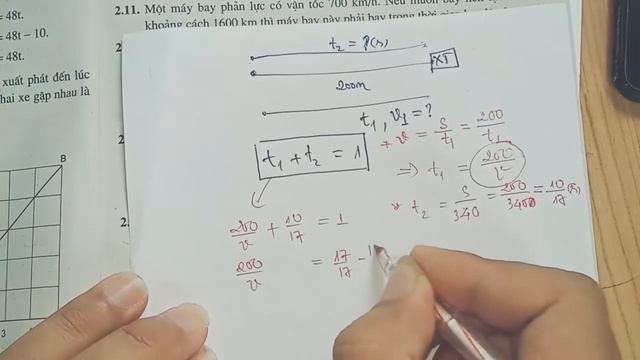 = 48t.
= 48t – 10.
= 48t.
xuất phát đến lúc
hai xe gặp nhau là
B
3
2.11. Một máy bay phản lực có vận tốc 700 km/h. Nếu muốn bay
khoảng cách 1600 km thì máy bay này phải bay trong thời gian
2
2.
t₂ = ?(s)
XT
200m
t₁, v₁ = ?
t₁ + t₂ = 1
+ v = s/t₁ = 200/t₁
⇒ t₁ = 200/v
* t₂ = s/340 = 200/340 = 10/17 (s)
200/v + 10/17 = 1
200/v = 17/17 - 1